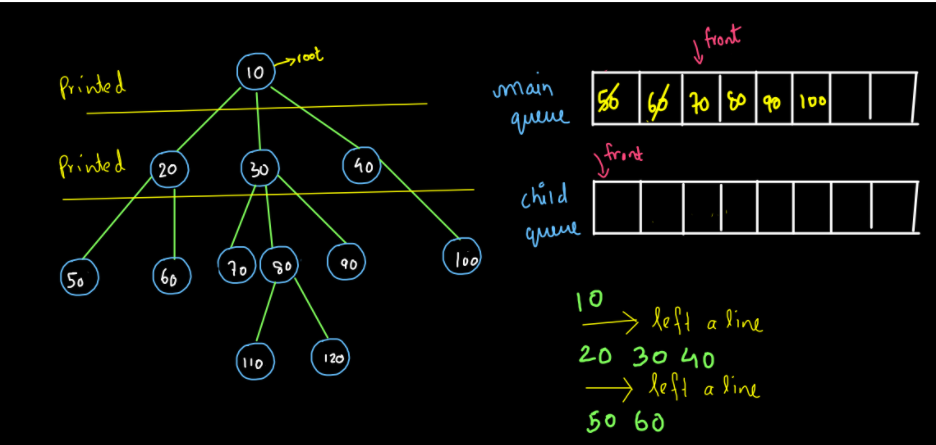 10 → root
Printed
Printed
20 30 40
50 60 70 80 90 100
110 120
front
main queue
50 60 70 80 90 100
front
child queue
10
→ left a line
20 30 40
→ left a line
50 60